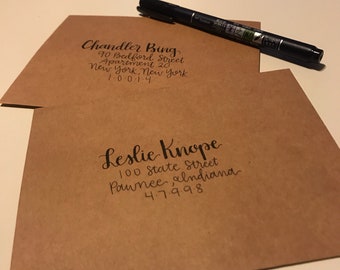 Chandler Bing
90 Bedford Street
Apartment 20
New York, New York
10014
Leslie Knope
100 State Street
Pawnee, Indiana
47998